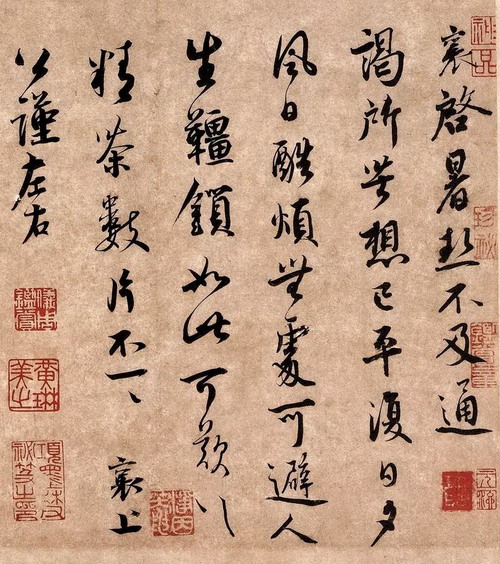 襄啓暑熱不及通
謁所苦想已平復日夕
風日酷煩無處可避人
生韁鎖如此可歎〻
精茶數片不一〻 襄上
公謹左右
黃琳美之